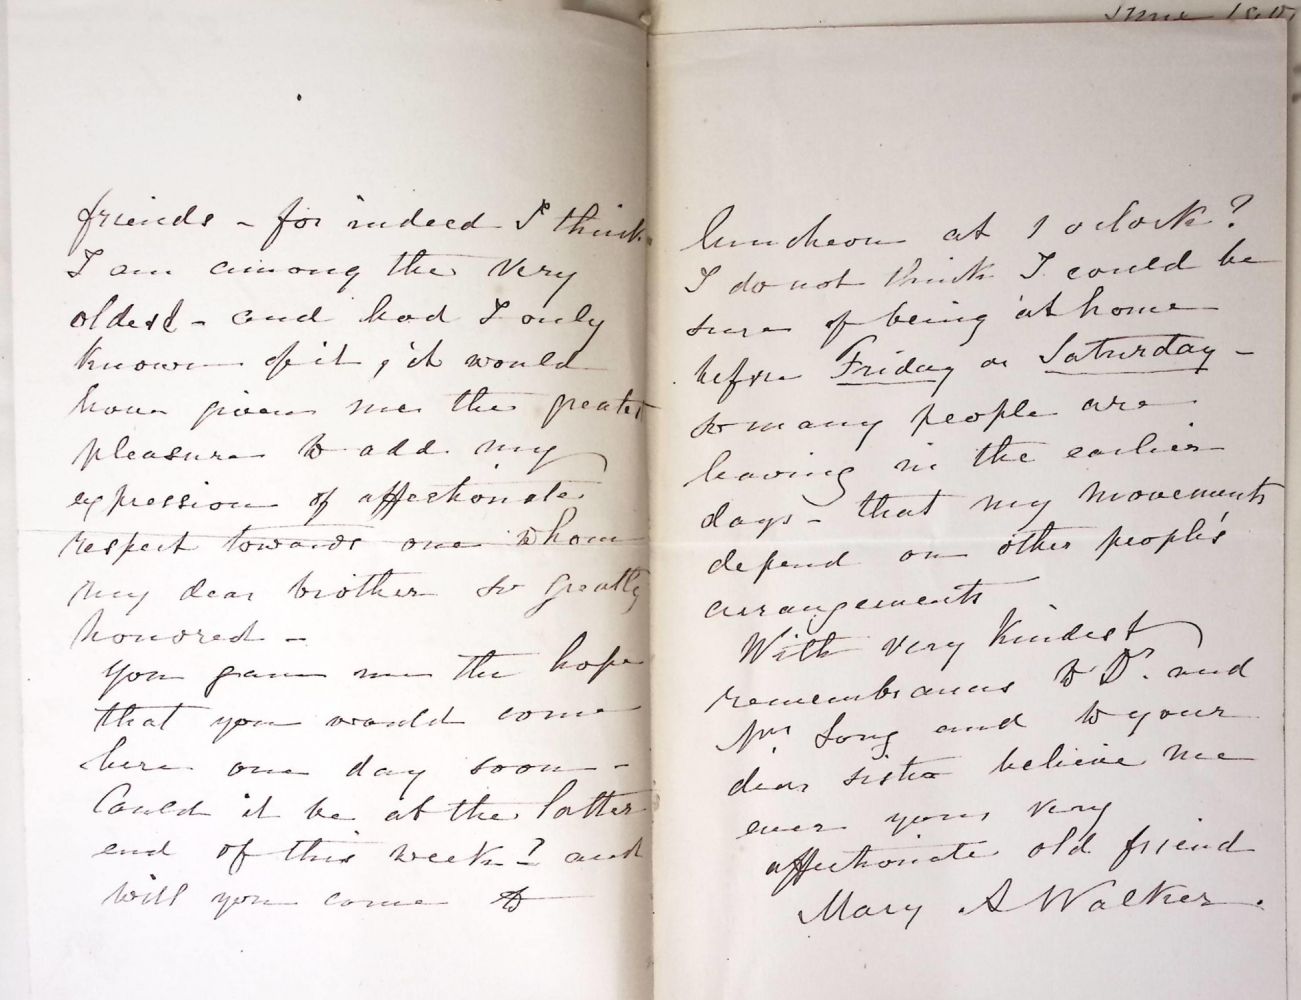 friends - for indeed I think
I am among the very
oldest - and had I only
known of it, it would
have given me the greatest
pleasure to add my
expression of affectionate
respect towards one whom
my dear brother so greatly
honored -
You gave me the hope
that you would come
here one day soon -
Could it be at the latter
end of this week? and
will you come to
luncheon at 1 oclock?
I do not think I could be
sure of being at home
before Friday or Saturday -
so many people are
leaving in the earlier
days - that my movements
depend on other people's
arrangements
With very kindest
remembrances to Dr. and
Mrs Long and to your
dear sister believe me
ever yours very
affectionate old friend
Mary A Walker.